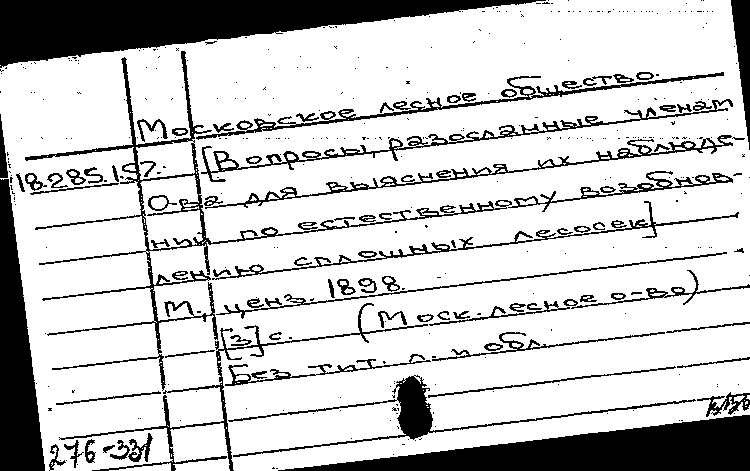 Московское лесное общество.
18.285.157. [Вопросы, разосланные членам
О-ва для выяснения их наблюде-
ний по естественному возобнов-
лению сплошных лесосек]
М., ценз. 1898.
[3] с. (Моск. лесное о-во)
Без тит. л. и обл.
276-331